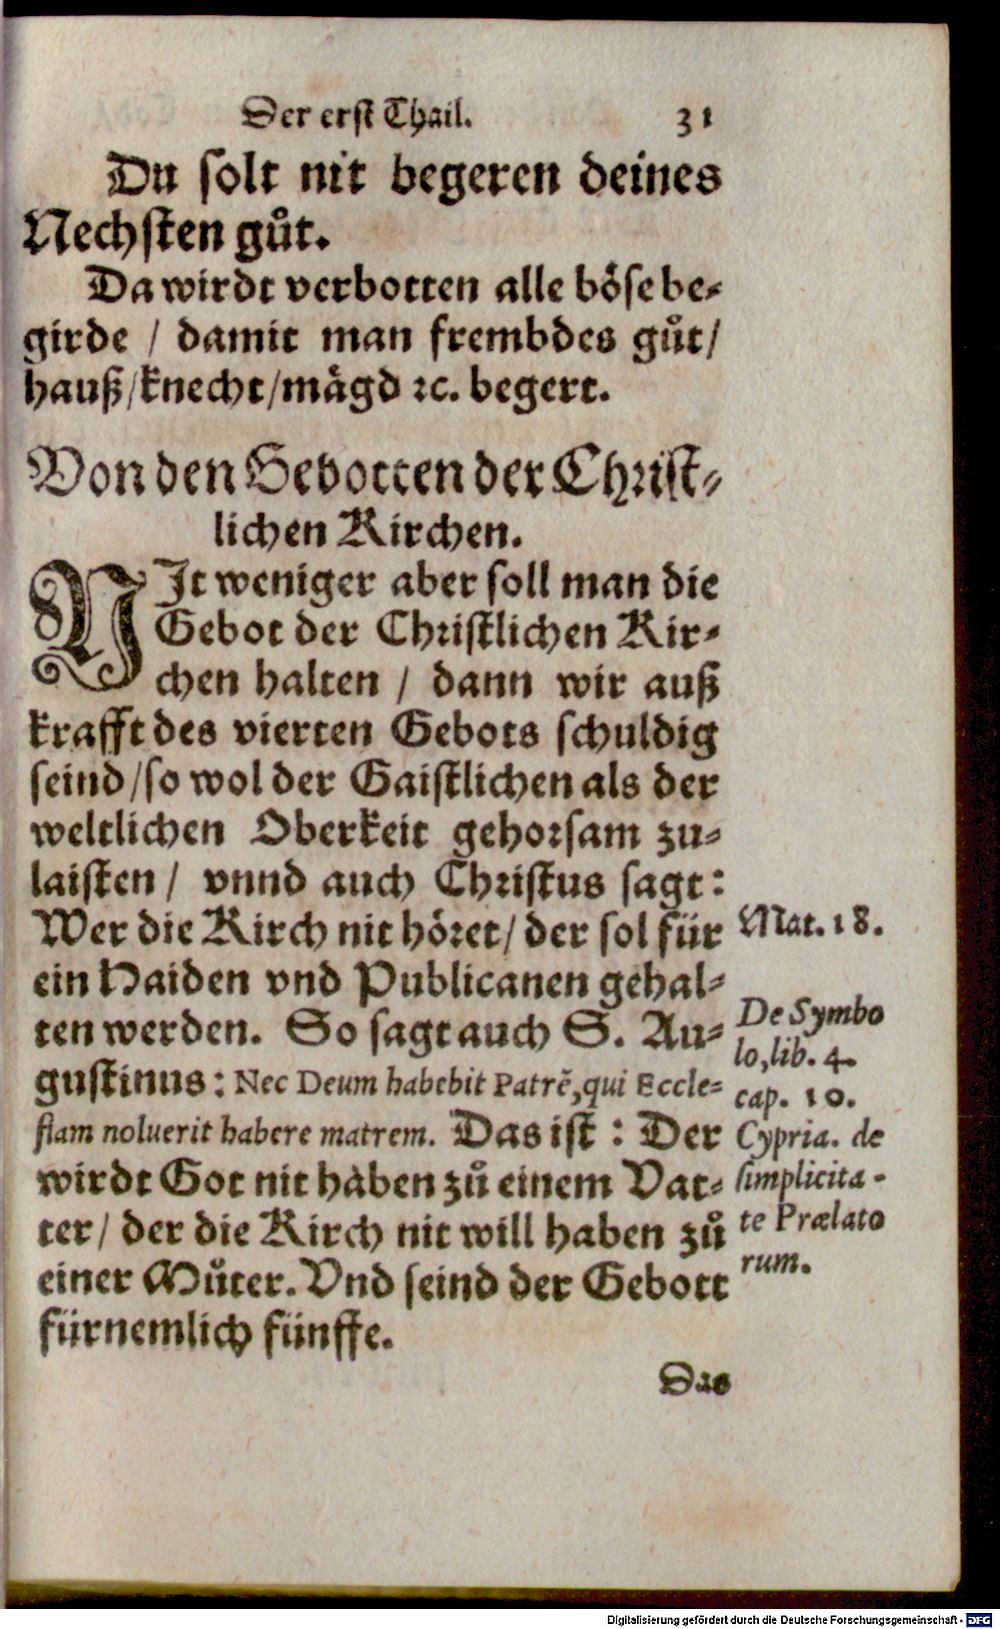 Der erst Thail. 31
Du solt nit begeren deines
Nechsten gůt.
Da wirdt verbotten alle böse be-
girde / damit man frembdes gůt/
hauß/knecht/mägd ꝛc. begert.
Von den Gebotten der Christ-
lichen Kirchen.
NIt weniger aber soll man die
Gebot der Christlichen Kir-
chen halten / dann wir auß
krafft des vierten Gebots schuldig
seind/so wol der Gaistlichen als der
weltlichen Oberkeit gehorsam zu-
laisten / vnnd auch Christus sagt:
Wer die Kirch nit höret/ der sol für
ein Haiden vnd Publicanen gehal-
ten werden. So sagt auch S. Au-
gustinus: Nec Deum habebit Patrē,qui Eccle-
siam noluerit habere matrem. Das ist : Der
wirdt Got nit haben zů einem Vat-
ter/ der die Kirch nit will haben zů
einer Můter. Vnd seind der Gebott
fürnemlich fünffe.
Das
Mat. 18.
De Symbo
lo,lib. 4.
cap. 10.
Cypria. de
simplicita-
te Prælato
rum.
Digitalisierung gefördert durch die Deutsche Forschungsgemeinschaft - DFG